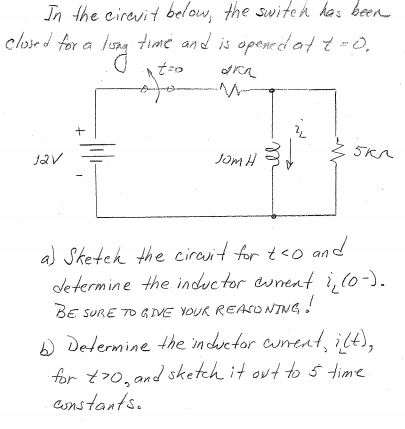 In the circuit below, the switch has been
closed for a long time and is opened at t = 0.
t=0
2KΩ
+
12V
-
10mH
iL
5KΩ
a) Sketch the circuit for t<0 and
determine the inductor current iL(0-).
BE SURE TO GIVE YOUR REASONING!
b) Determine the inductor current, iL(t),
for t>0, and sketch it out to 5 time
constants.